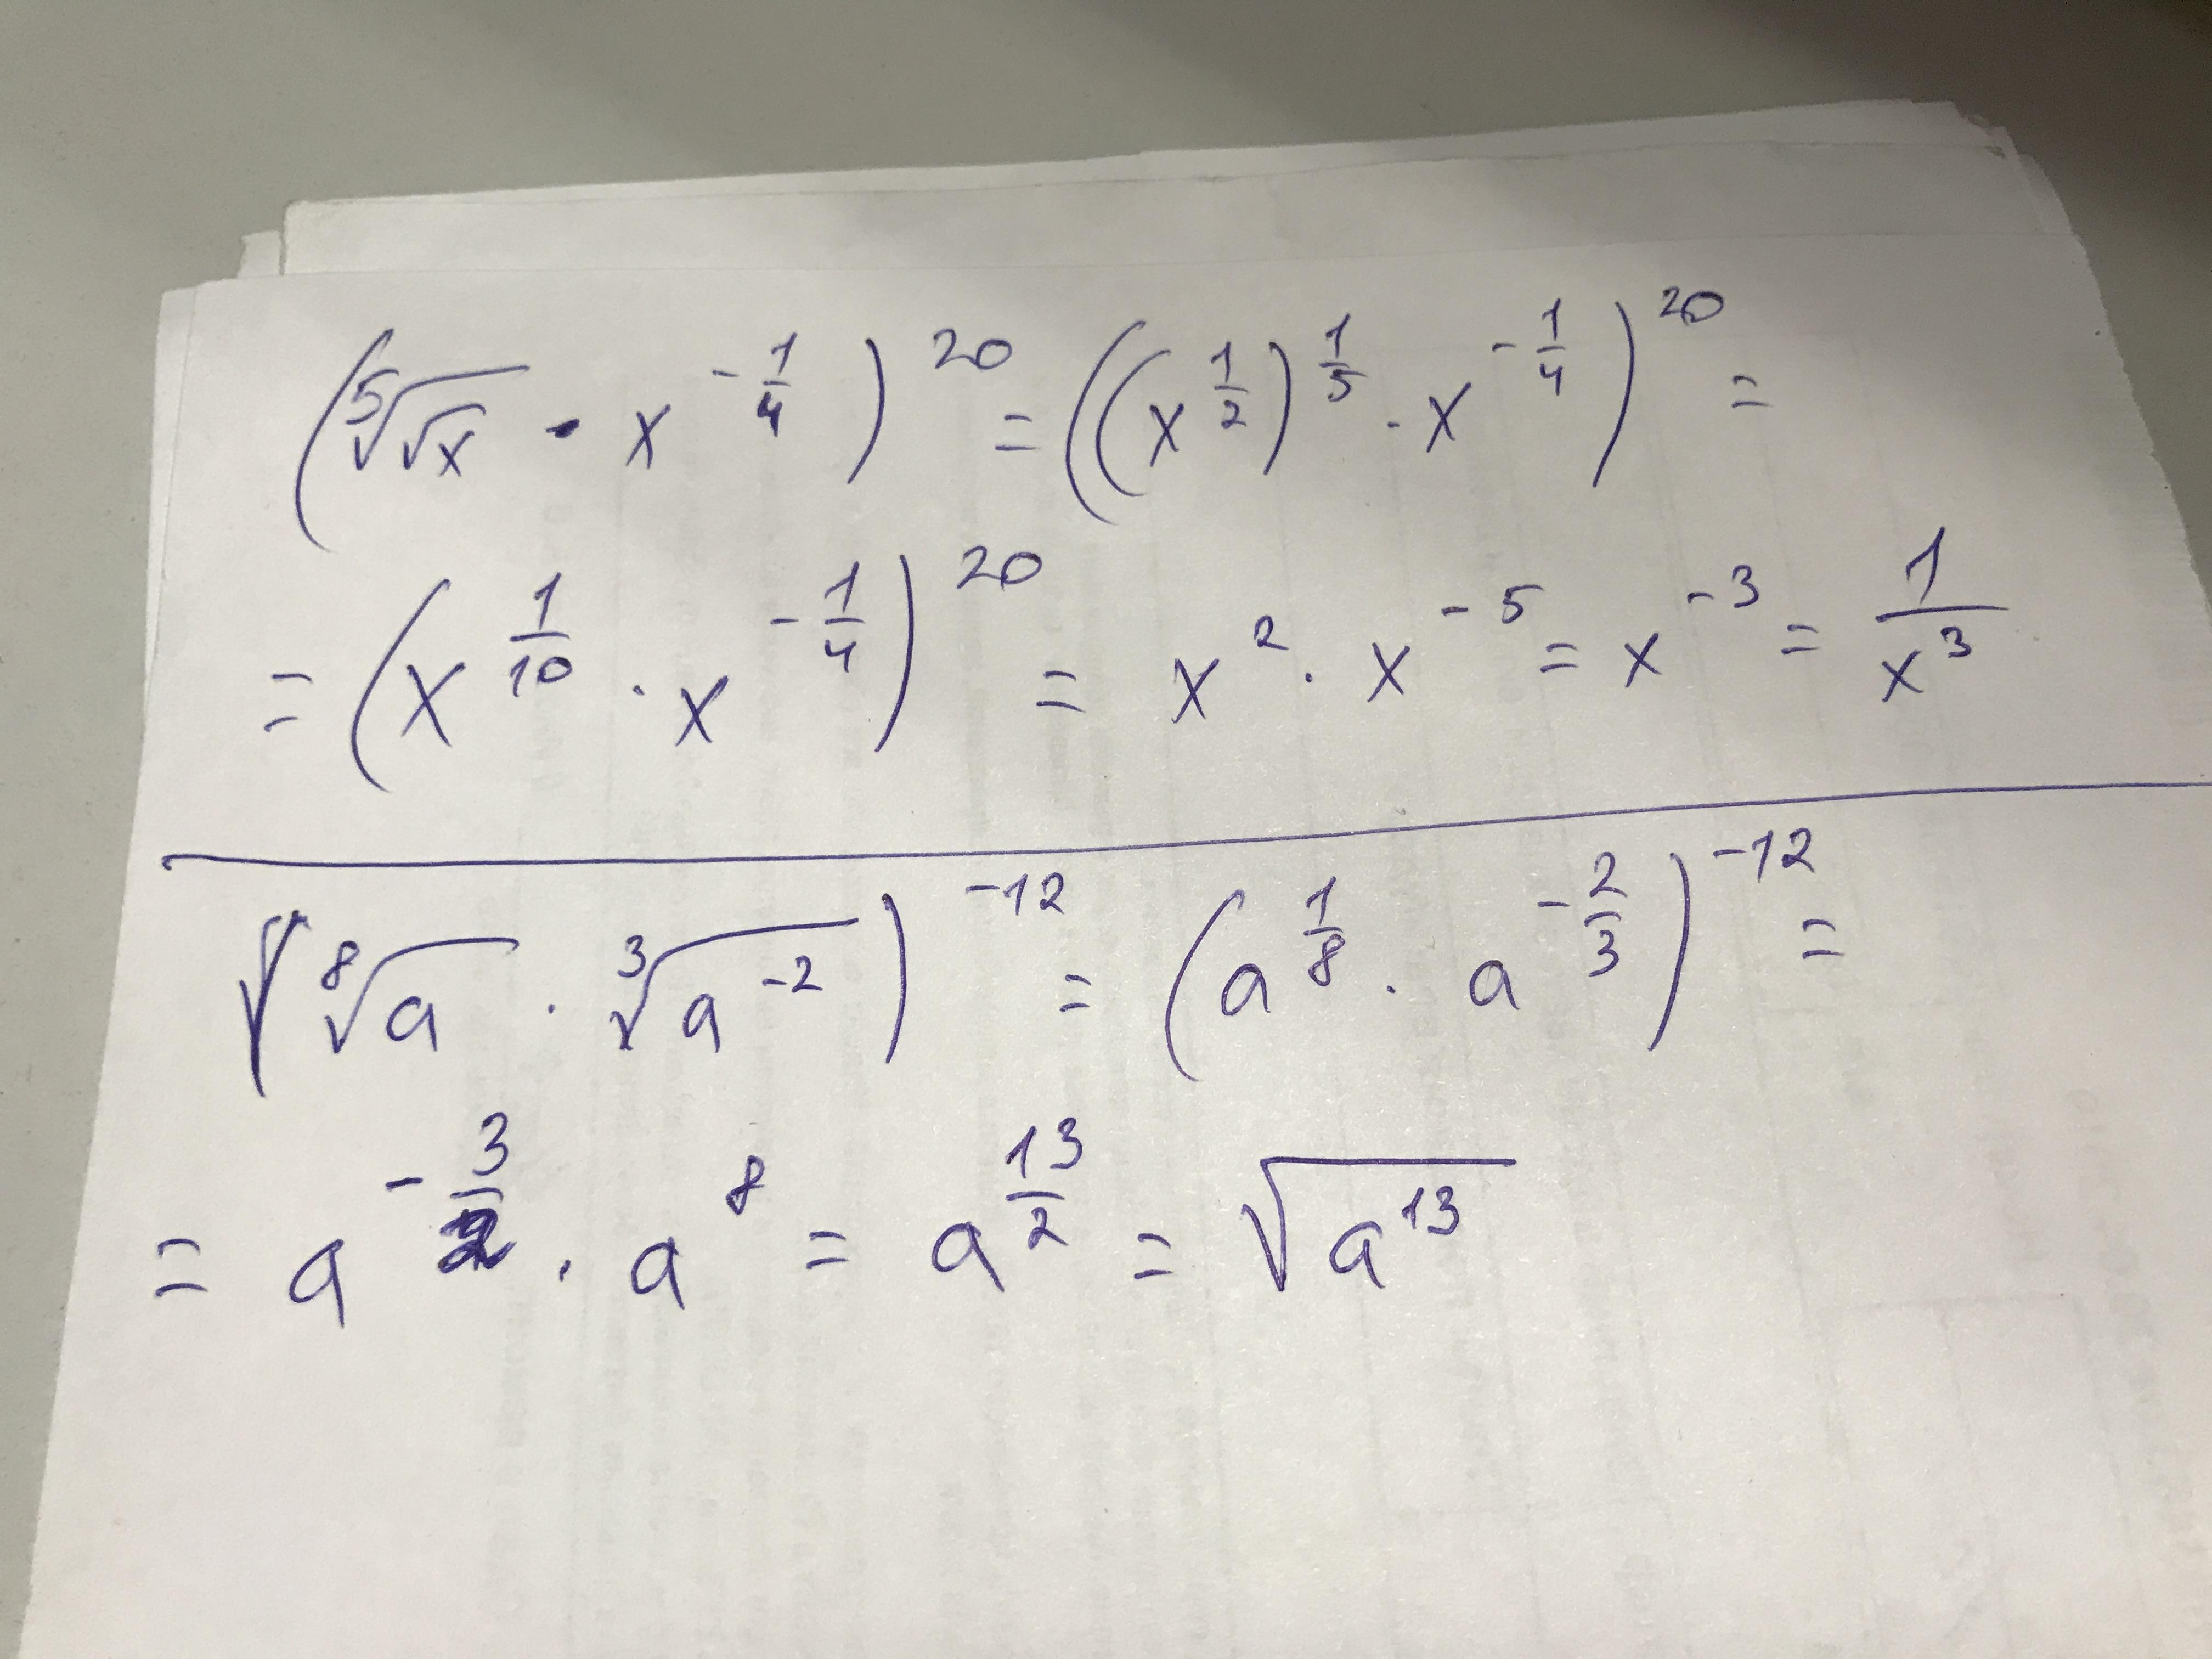 (⁵√√x · x^(-1/4))^20 = ((x^(1/2))^(1/5) · x^(-1/4))^20 =
= (x^(1/10) · x^(-1/4))^20 = x^2 · x^(-5) = x^(-3) = 1/x^3
(⁸√a · ³√(a^(-2)))^(-12) = (a^(1/8) · a^(-2/3))^(-12) =
= a^(-3/2) · a^8 = a^(13/2) = √(a^13)